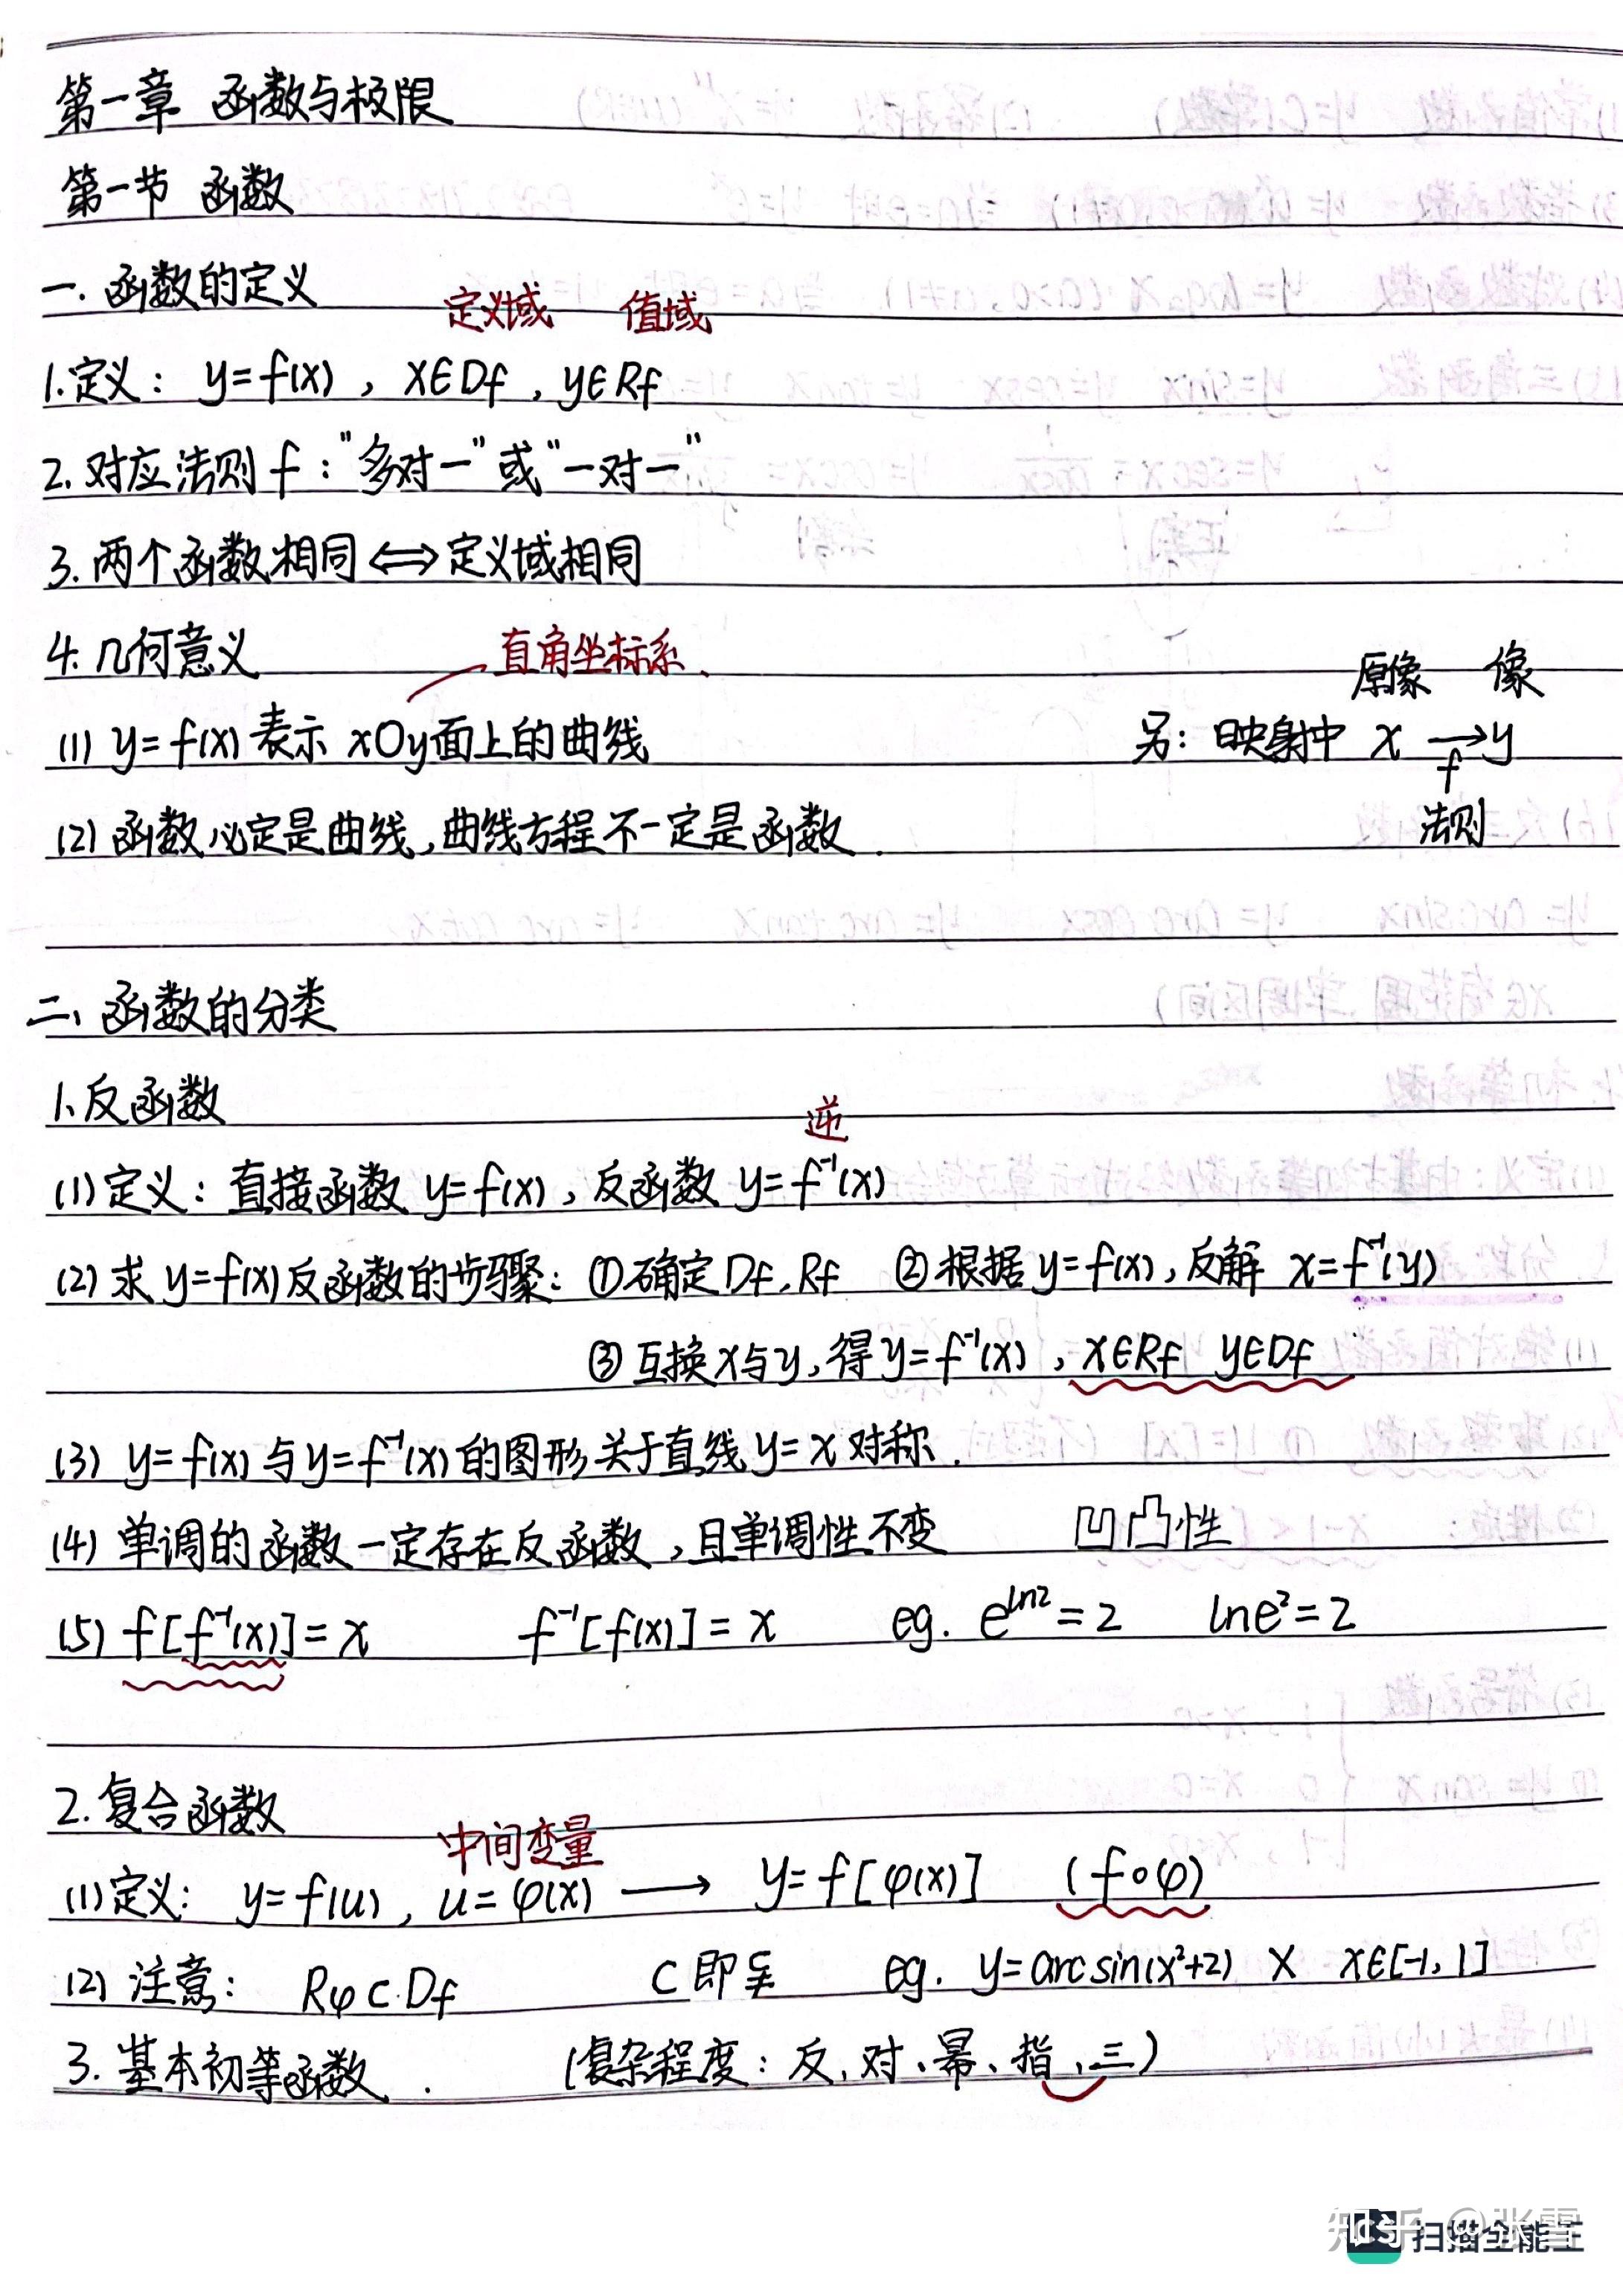 第一章 函数与极限
第一节 函数
一. 函数的定义
定义域 值域
1.定义: y=f(x), x∈Df, y∈Rf
2. 对应法则 f:"多对一"或"一对一"
3. 两个函数相同⟺定义域相同
4. 几何意义 直角坐标系.
原像 像
(1) y=f(x)表示 xOy面上的曲线 另: 映射中 x ⟶ y
f
(2) 函数必定是曲线,曲线方程不一定是函数. 法则
二、函数的分类
1、反函数
逆
(1)定义: 直接函数 y=f(x), 反函数 y=f⁻¹(x)
(2) 求 y=f(x)反函数的步骤: ①确定Df,Rf ②根据y=f(x),反解 x=f⁻¹(y)
③互换x与y,得y=f⁻¹(x), x∈Rf y∈Df
(3) y=f(x)与y=f⁻¹(x)的图形关于直线y=x对称.
(4) 单调的函数一定存在反函数,且单调性不变 凹凸性
(5) f[f⁻¹(x)]=x f⁻¹[f(x)]=x eg. e^ln2=2 lne²=2
2. 复合函数
中间变量
(1)定义: y=f(u), u=φ(x) ⟶ y=f[φ(x)] (f∘φ)
(2) 注意: Rφ⊂Df ⊂即⊊ eg. y=arcsin(x²+2) × x∈[-1,1]
3. 基本初等函数. (复杂程度: 反、对、幂、指、三)
知乎 @张雪
CS 扫描全能王